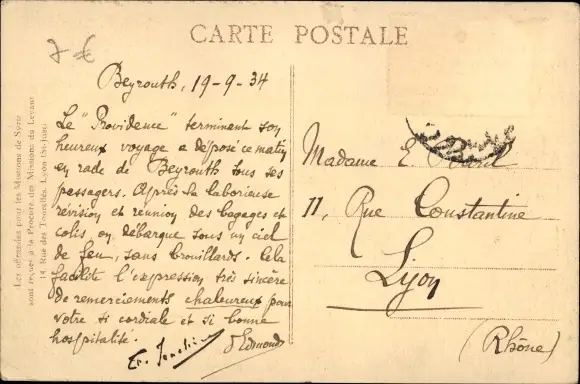 7-€
CARTE POSTALE
Beyrouth, 19-9-34
Le "Providence" terminant son
heureux voyage a déposé ce matin
en rade de Beyrouth tous ses
passagers. Après la laborieuse
révision et réunion des bagages et
colis on débarque sous un ciel
de feu, sans brouillards. Cela
facilite l'expression très sincère
de remerciements chaleureux pour
votre si cordiale et si bonne
hospitalité.
d'Edmond
Madame E.
11, Rue Constantine
Lyon
(Rhône)
Les offrandes pour les Missions de Syrie
sont reçues à la Procure des Missions du Levant
14, Rue des Tourelles, Lyon (St-Just)